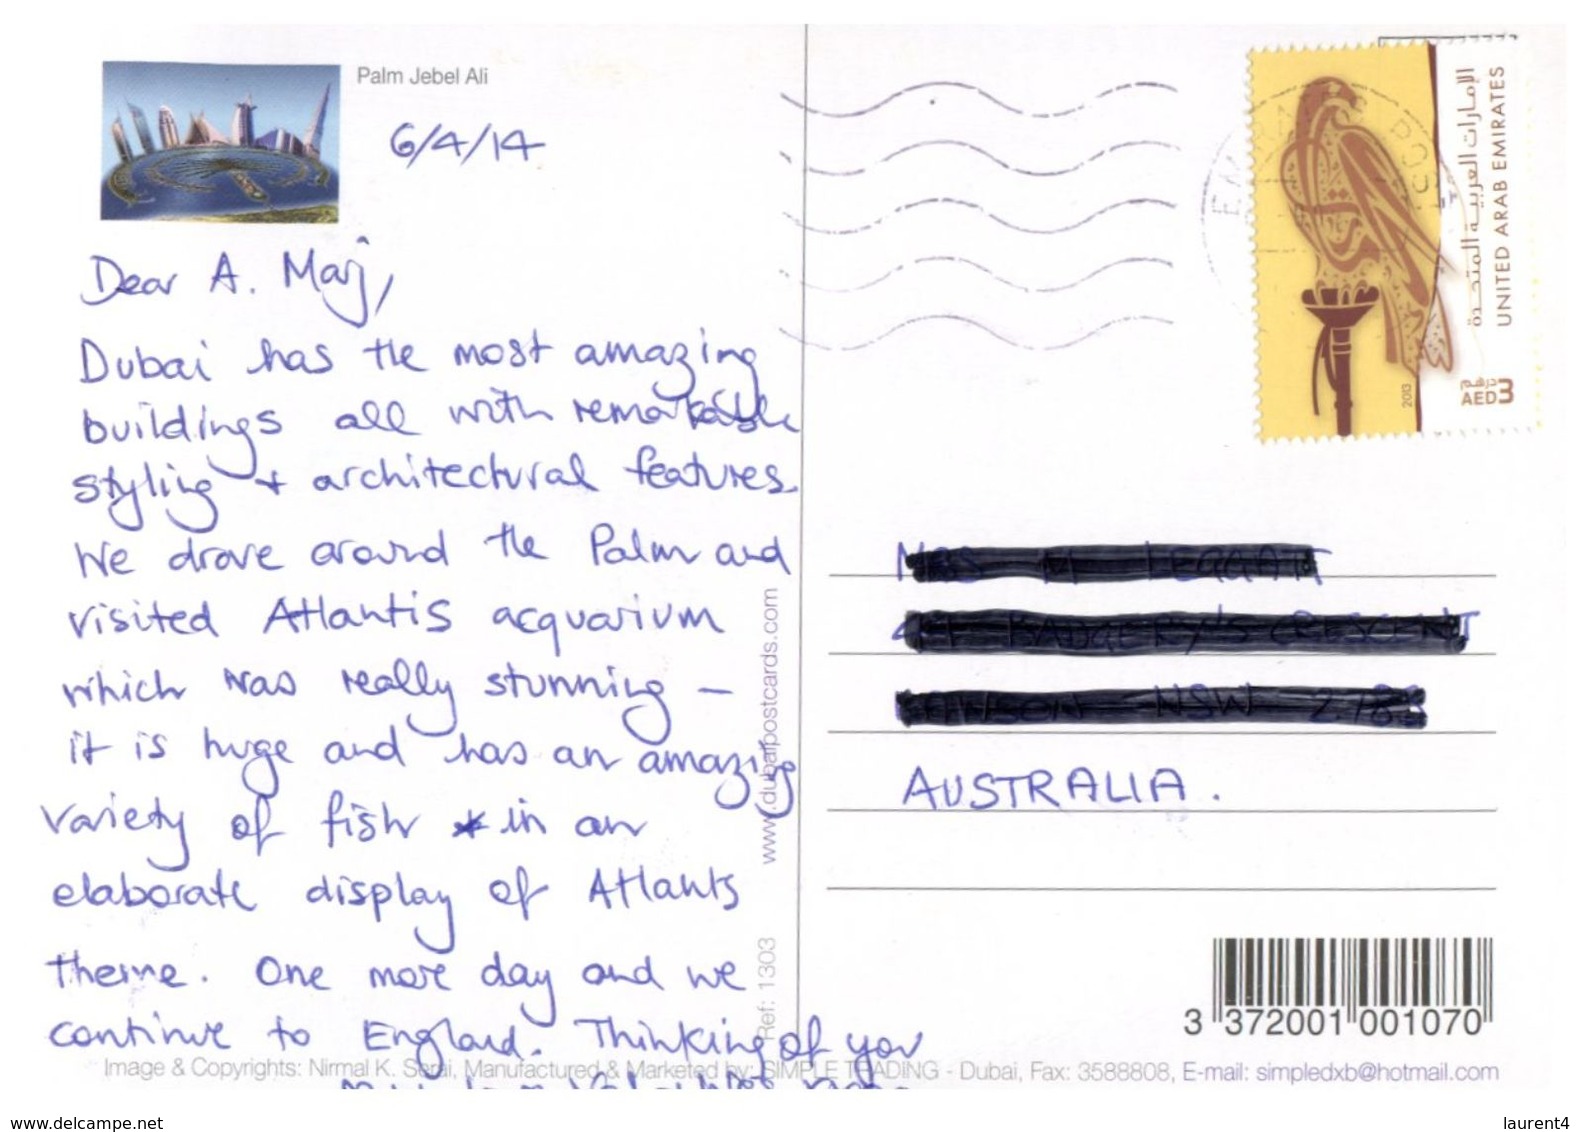 Palm Jebel Ali
6/4/14
Dear A. Marj,
Dubai has the most amazing
buildings all with remarkable
styling + architectural features.
We drove around the Palm and
visited Atlantis acquarium
which was really stunning –
it is huge and has an amazing
variety of fish in an
elaborate display of Atlantis
theme. One more day and we
continue to England. Thinking of you
www.dubaipostcards.com
Ref: 1303
الإمارات العربية المتحدة
UNITED ARAB EMIRATES
2013
درهم
AED 3
AUSTRALIA.
3 372001 001070
Image & Copyrights: Nirmal K. Serai, Manufactured & Marketed by: SIMPLE TRADING - Dubai, Fax: 3588808, E-mail: simpledxb@hotmail.com
www.delcampe.net
laurent4